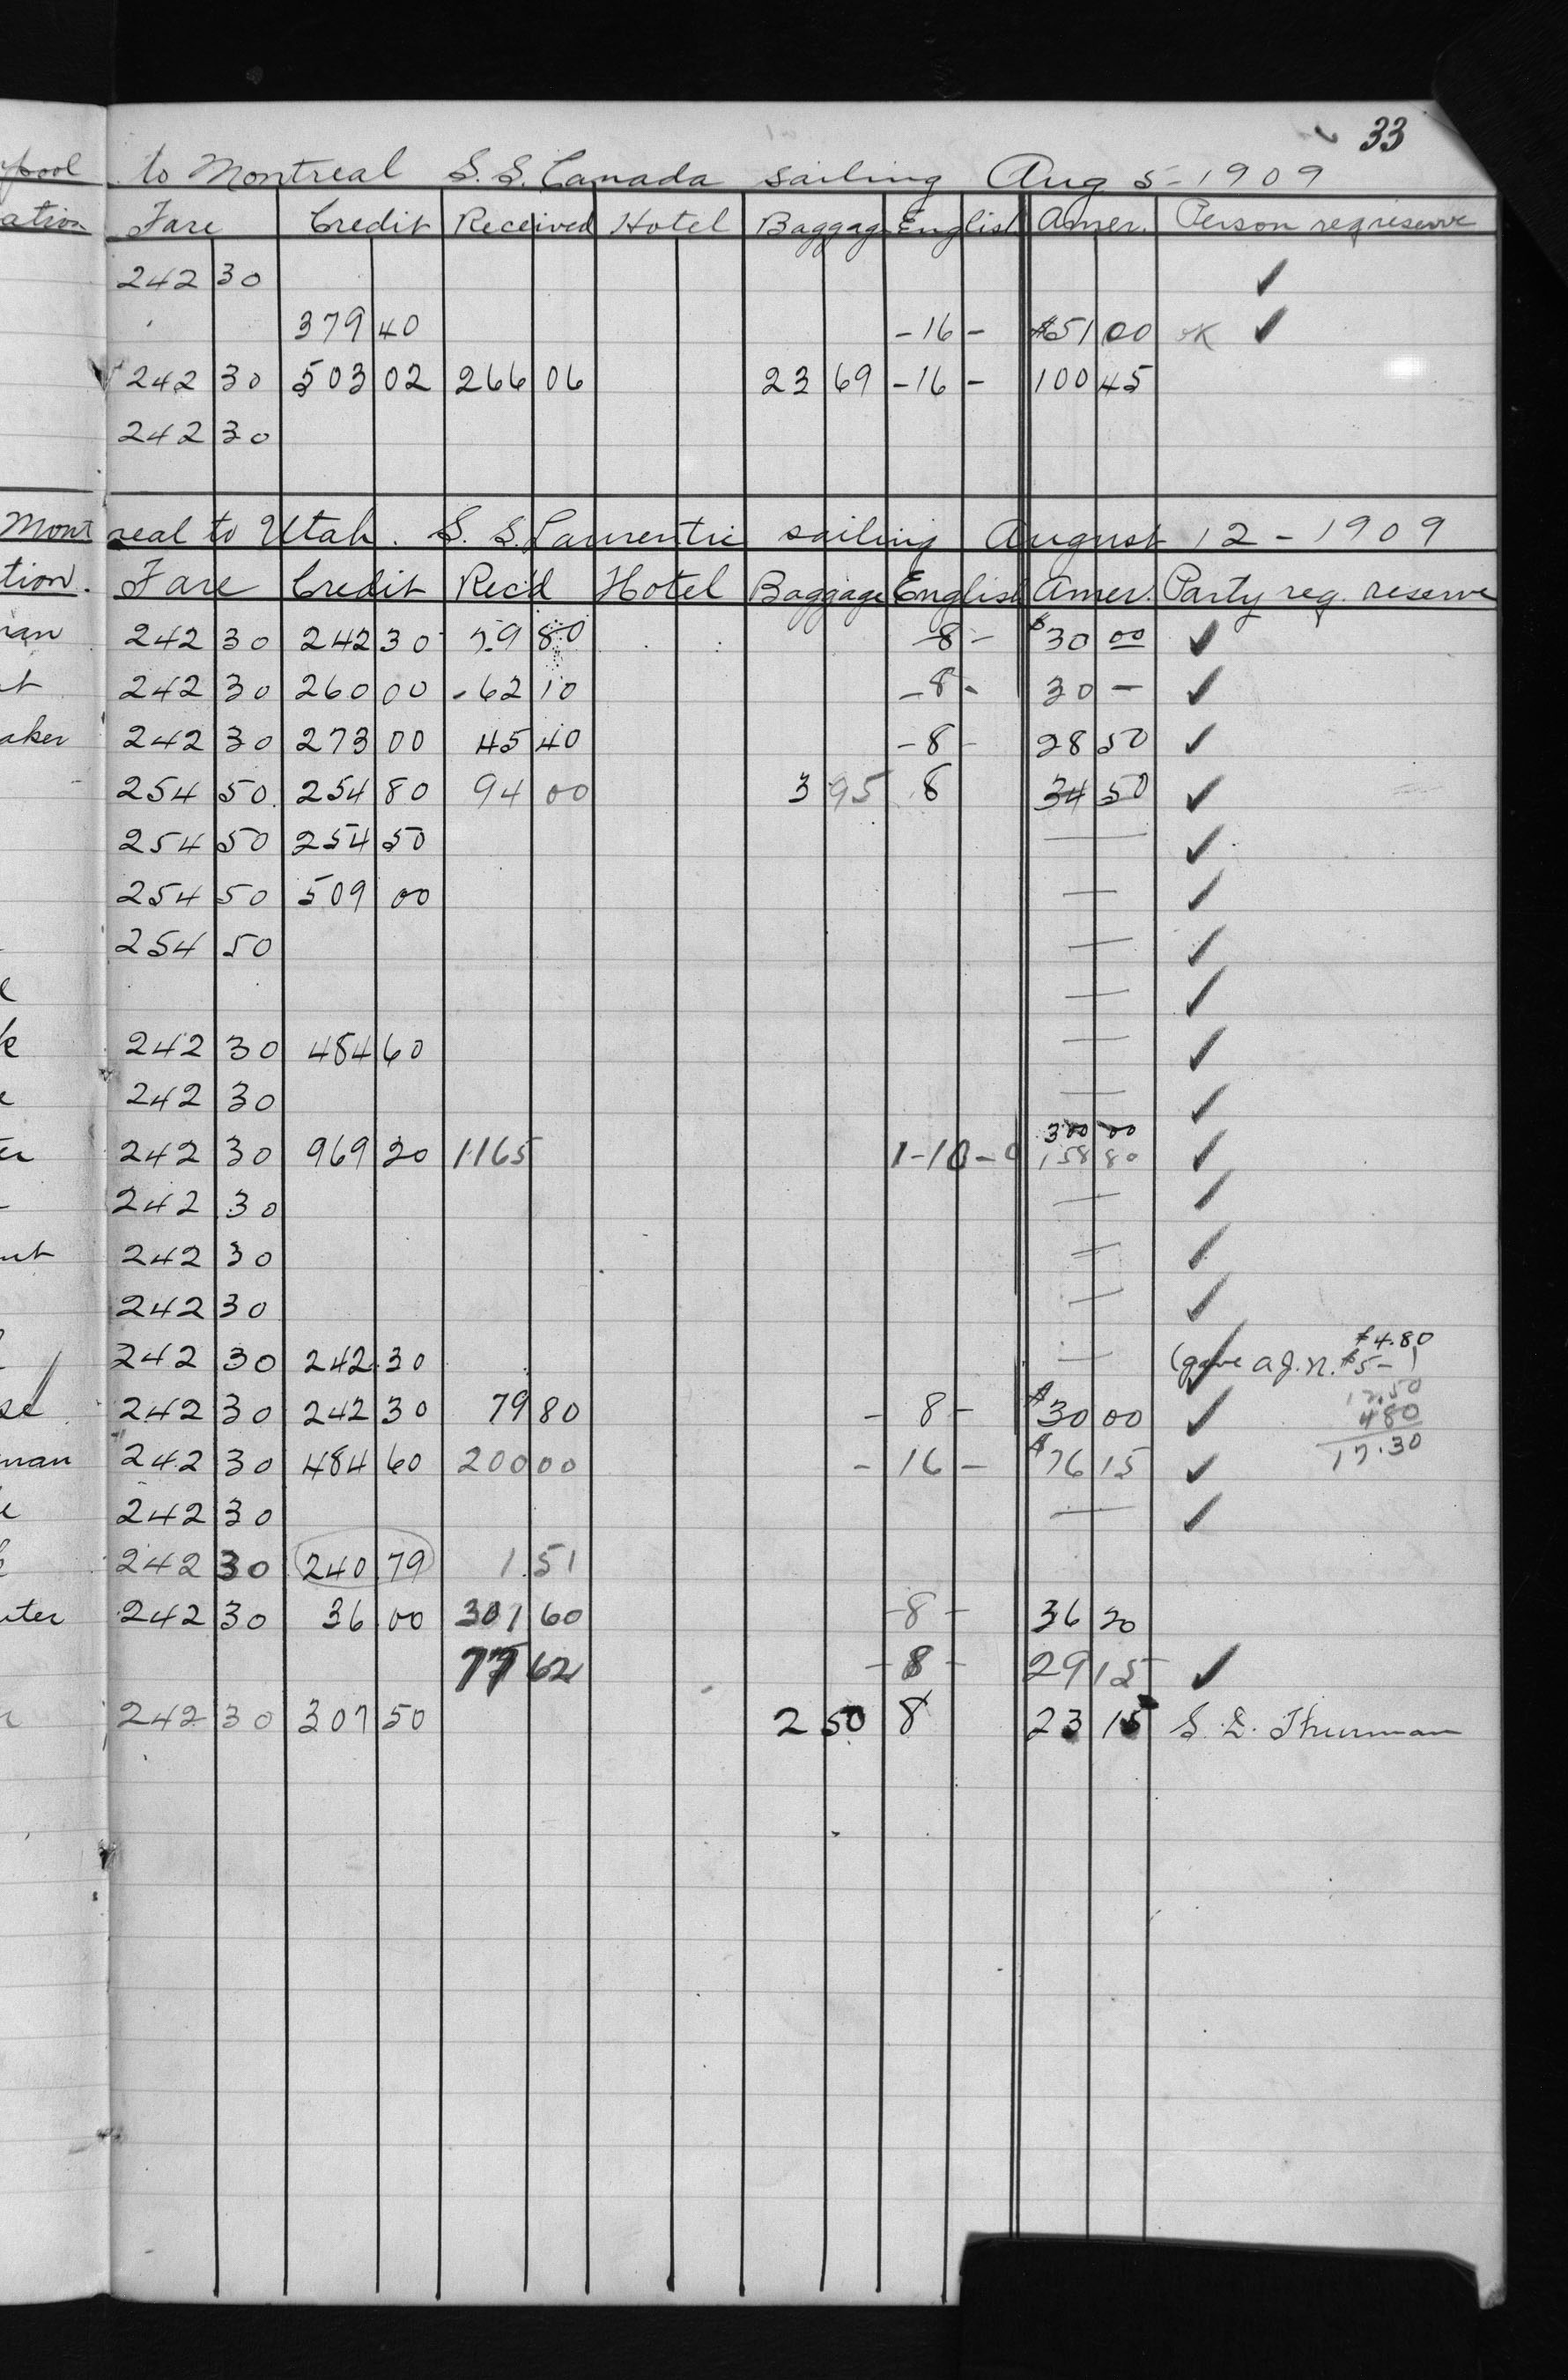 33
pool to Montreal S. S. Canada sailing Aug 5 - 1909
ation Fare Credit Received Hotel Baggag English Amer. Person reqreserve
242 30 ✓
379 40 - 16 - $51 00 OK ✓
242 30 503 02 266 06 23 69 - 16 - 100 45
242 30
Montreal to Utah. S. S. Laurentic sailing August 12 - 1909
tion. Fare Credit Rec'd Hotel Baggage English Amer. Party reg. reserve
242 30 242 30 80 - 8 - $30 00 ✓
242 30 260 00 - 62 10 - 8 - 30 - ✓
aker 242 30 273 00 45 40 - 8 - 28 50 ✓
254 50 254 80 94 00 3 95 8 34 50 ✓
254 50 254 50 — ✓
254 50 509 00 — ✓
254 50 — ✓
— ✓
242 30 484 60 — ✓
242 30 — ✓
300 00
242 30 969 20 1165 1-10-0 158 80 ✓
242 30 — ✓
242 30 — ✓
242 30 — ✓
$4.80
242 30 242 30 — (gave a J. N. $5-) ✓
12.50
se 242 30 242 30 79 80 - 8 - $30 00 ✓ 480
man 242 30 484 60 200 00 - 16 - $76 15 ✓ 17.30
242 30 — ✓
242 30 240 79 1 51
ter 242 30 36 00 301 60 - 8 - 36 20
62 - 8 - 29 15 ✓
242 30 307 50 2 50 8 23 15 S. E. Thurman